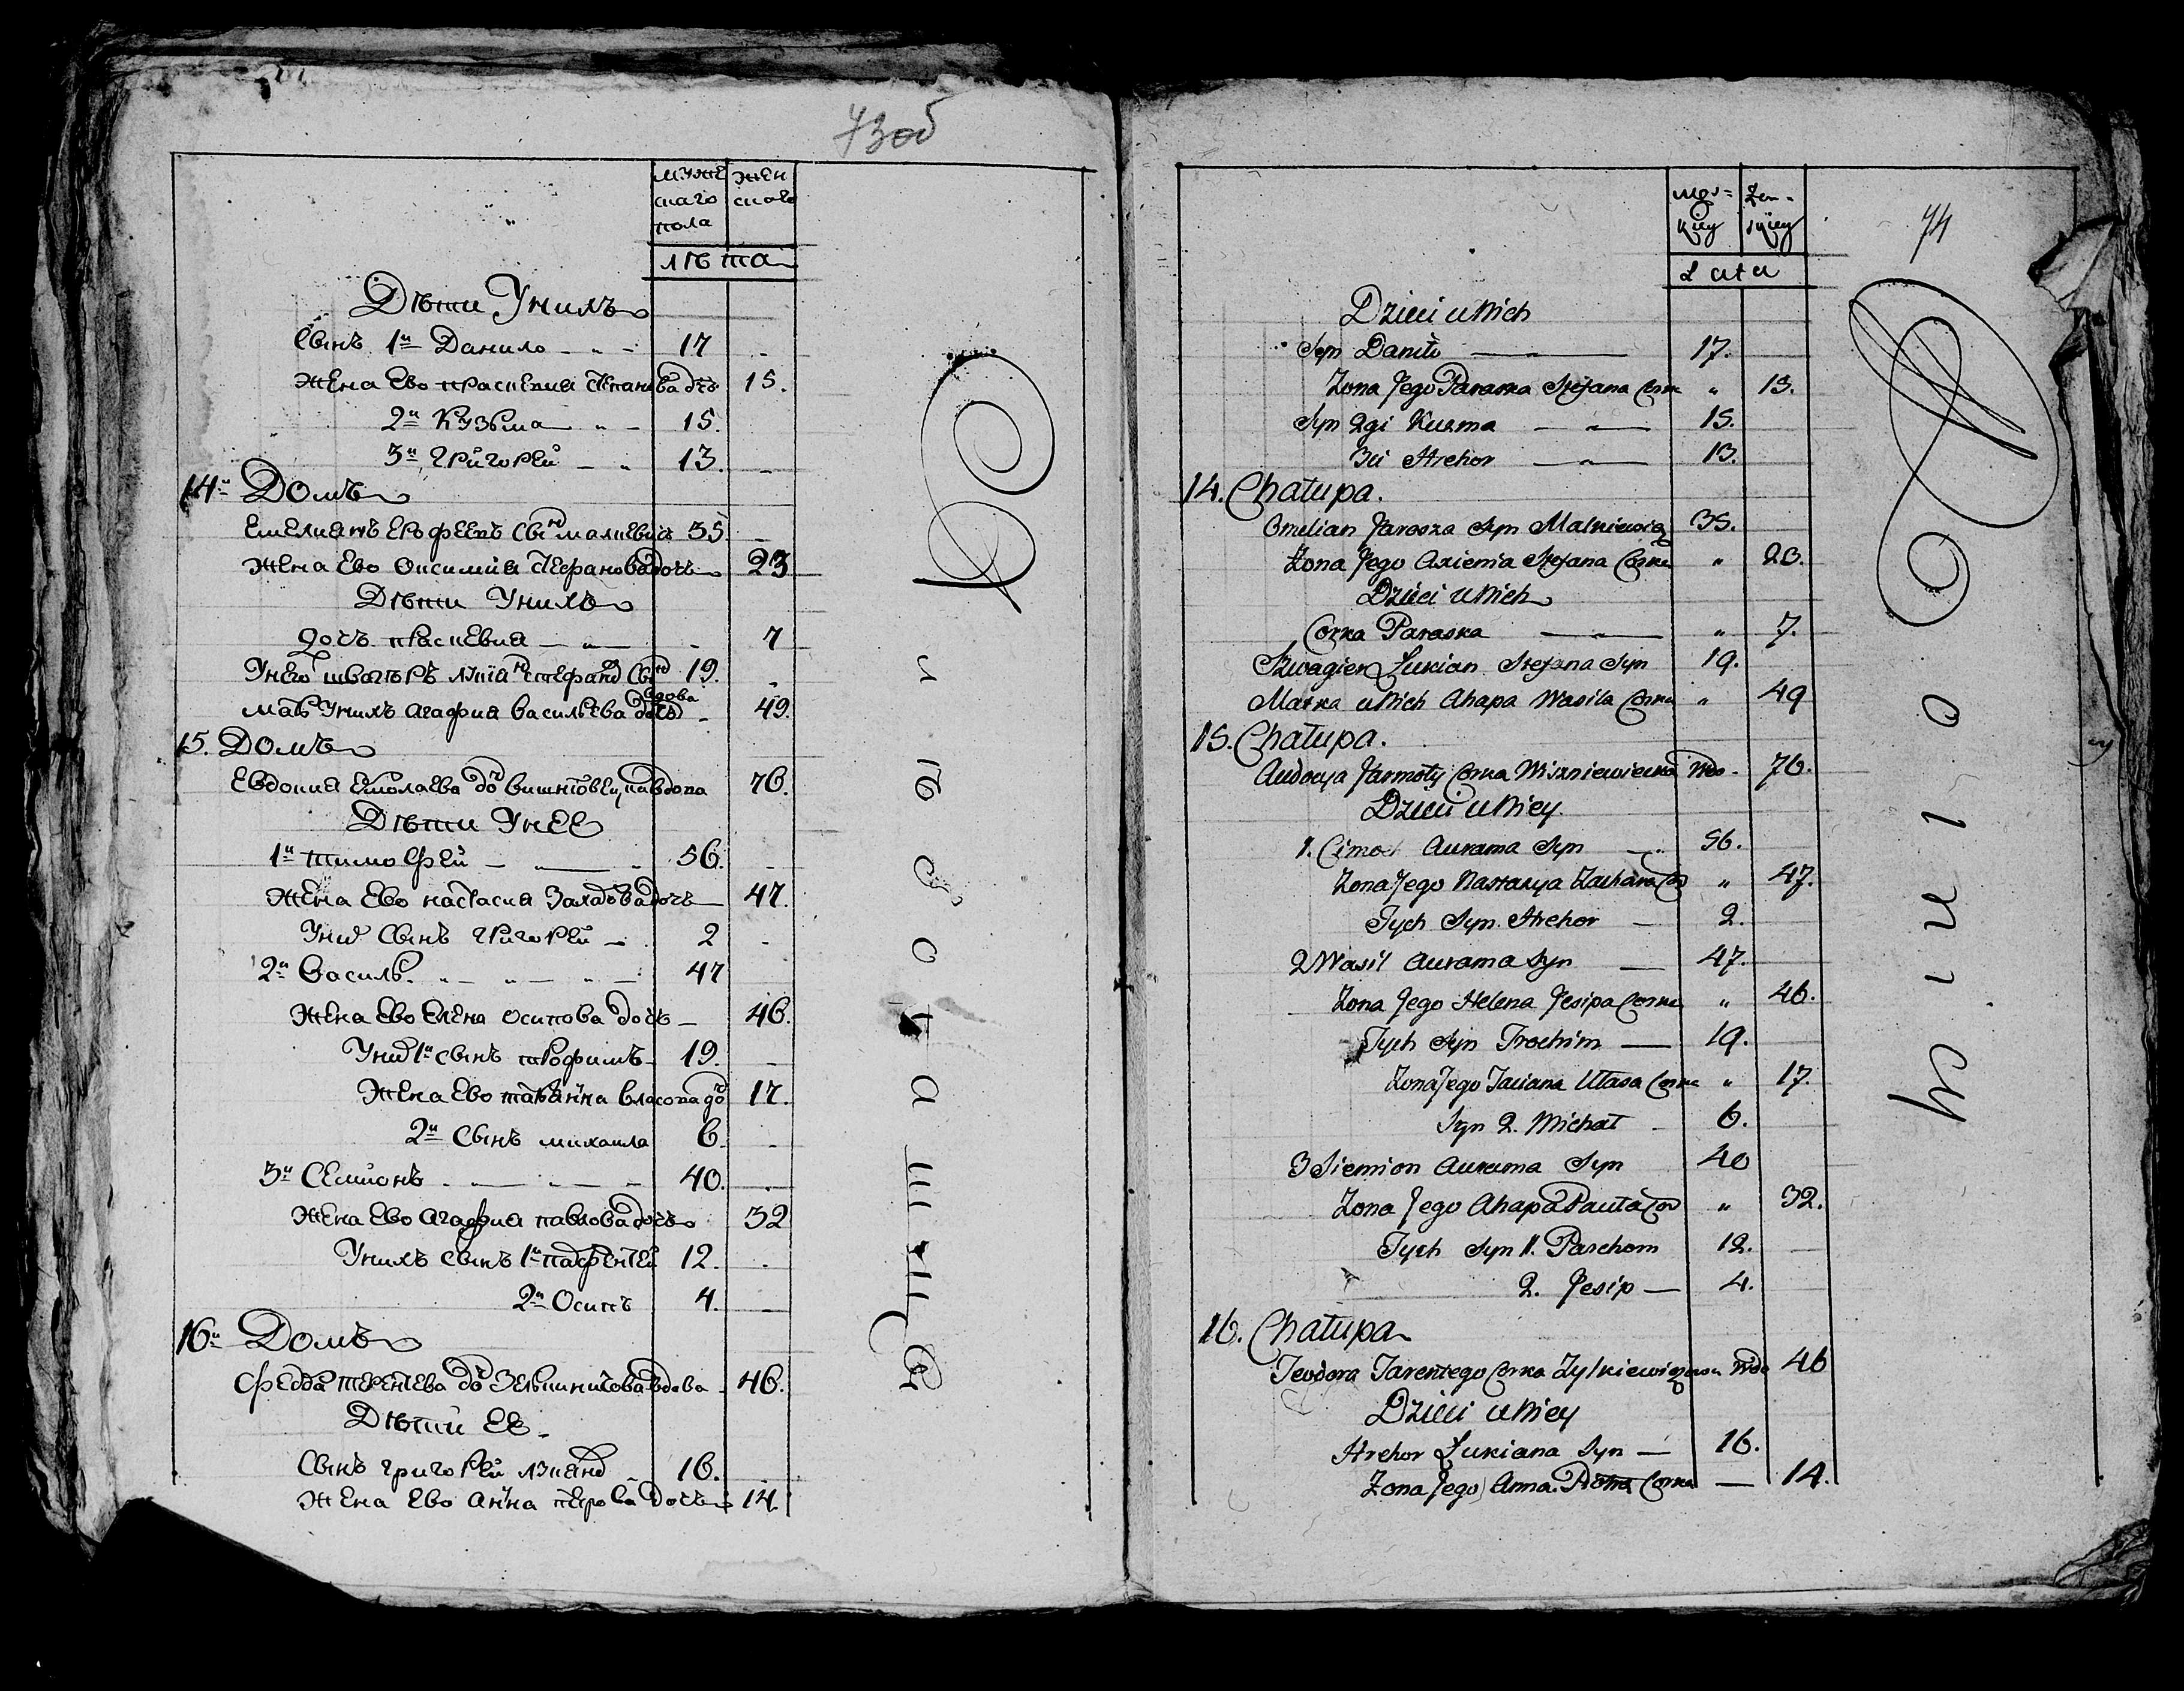 73об
мужескаго пола
женскаго
лѣта
Дѣти Унихъ
Сынъ 1й Данило 17
Жена Ево праскевия Степанова дочь 15.
2й Кузьма 15.
3й Григорей 13.
14й Домъ
Емелианъ Ерофеевъ Сын малкевичь 35
Жена Ево Оксимия Стефанова дочь 23
Дѣти Унихъ
дочь праскевия 7
Унего швагеръ лукианъ стефанов Сын 19.
мать Унихъ агафия васильева дочь вдова 49.
15. Домъ
Евдокия Ермолаева доч вишнѣовецкая вдова 76.
Дѣти Унее
1й тимофей 56.
Жена Ево настасия Захарова дочь 47.
Них Сынъ григорей 2
2й Василь 47
Жена Ево Елена осипова дочь 46.
Них 1й сынъ трофимъ 19.
Жена Ево татьяна власова доч 17.
2й Сынъ михаила 6.
3й Семионъ 40.
Жена Ево Агафия павлова дочь 32
Унихъ сынъ 1й парфентей 12.
2й Осипъ 4.
16й Домъ
федора терентева доч Зелькиничова вдова 46.
Дѣти Ее
Сынъ григорей лукианов 16.
Жена Ево анна петрова дочь 14.
74
męzkiey
żenskiey
Lata
Dzieci u Nich
Syn Daniło 17.
Zona Jego Paraska Stefana Corka " 15.
Syn 2gi Kuzma 15.
3ci Hrehor 13.
14. Chałupa.
Omelian Jarosza Syn Malkiewicz 35.
Zona Jego Axienia Stefana Corka " 23.
Dzieci u Nich
Corka Paraska " 7.
Szwagier Łukian Stefana Syn 19.
Matka u Nich Ahapa Wasila Corka " 49
15. Chałupa.
Audocya Jarmoły Corka Wiszniewiecka Wdo 76.
Dzieci u Niey.
1. Cimoch Aurama Syn 56.
Zona Jego Nastazya Zachara Cor " 47.
Tych Syn Hrehor 2.
2 Wasil Aurama Syn 47.
Zona Jego Helena Jesipa Corka " 46.
Tych Syn Trochim 19.
Zona Jego Taciana Ułasa Corka " 17.
Syn 2. Michał 6.
3 Siemion Aurama Syn 40
Zona Jego Ahapa Pauła Cor " 32.
Tych Syn 1. Parchom 12.
2. Jesip 4.
16. Chałupa
Teodora Tarentego Corka Zylkiewiczowa Wdo 46
Dzieci u Niey
Hrehor Łukiana Syn 16.
Zona Jego Anna Piotra Corka 14.